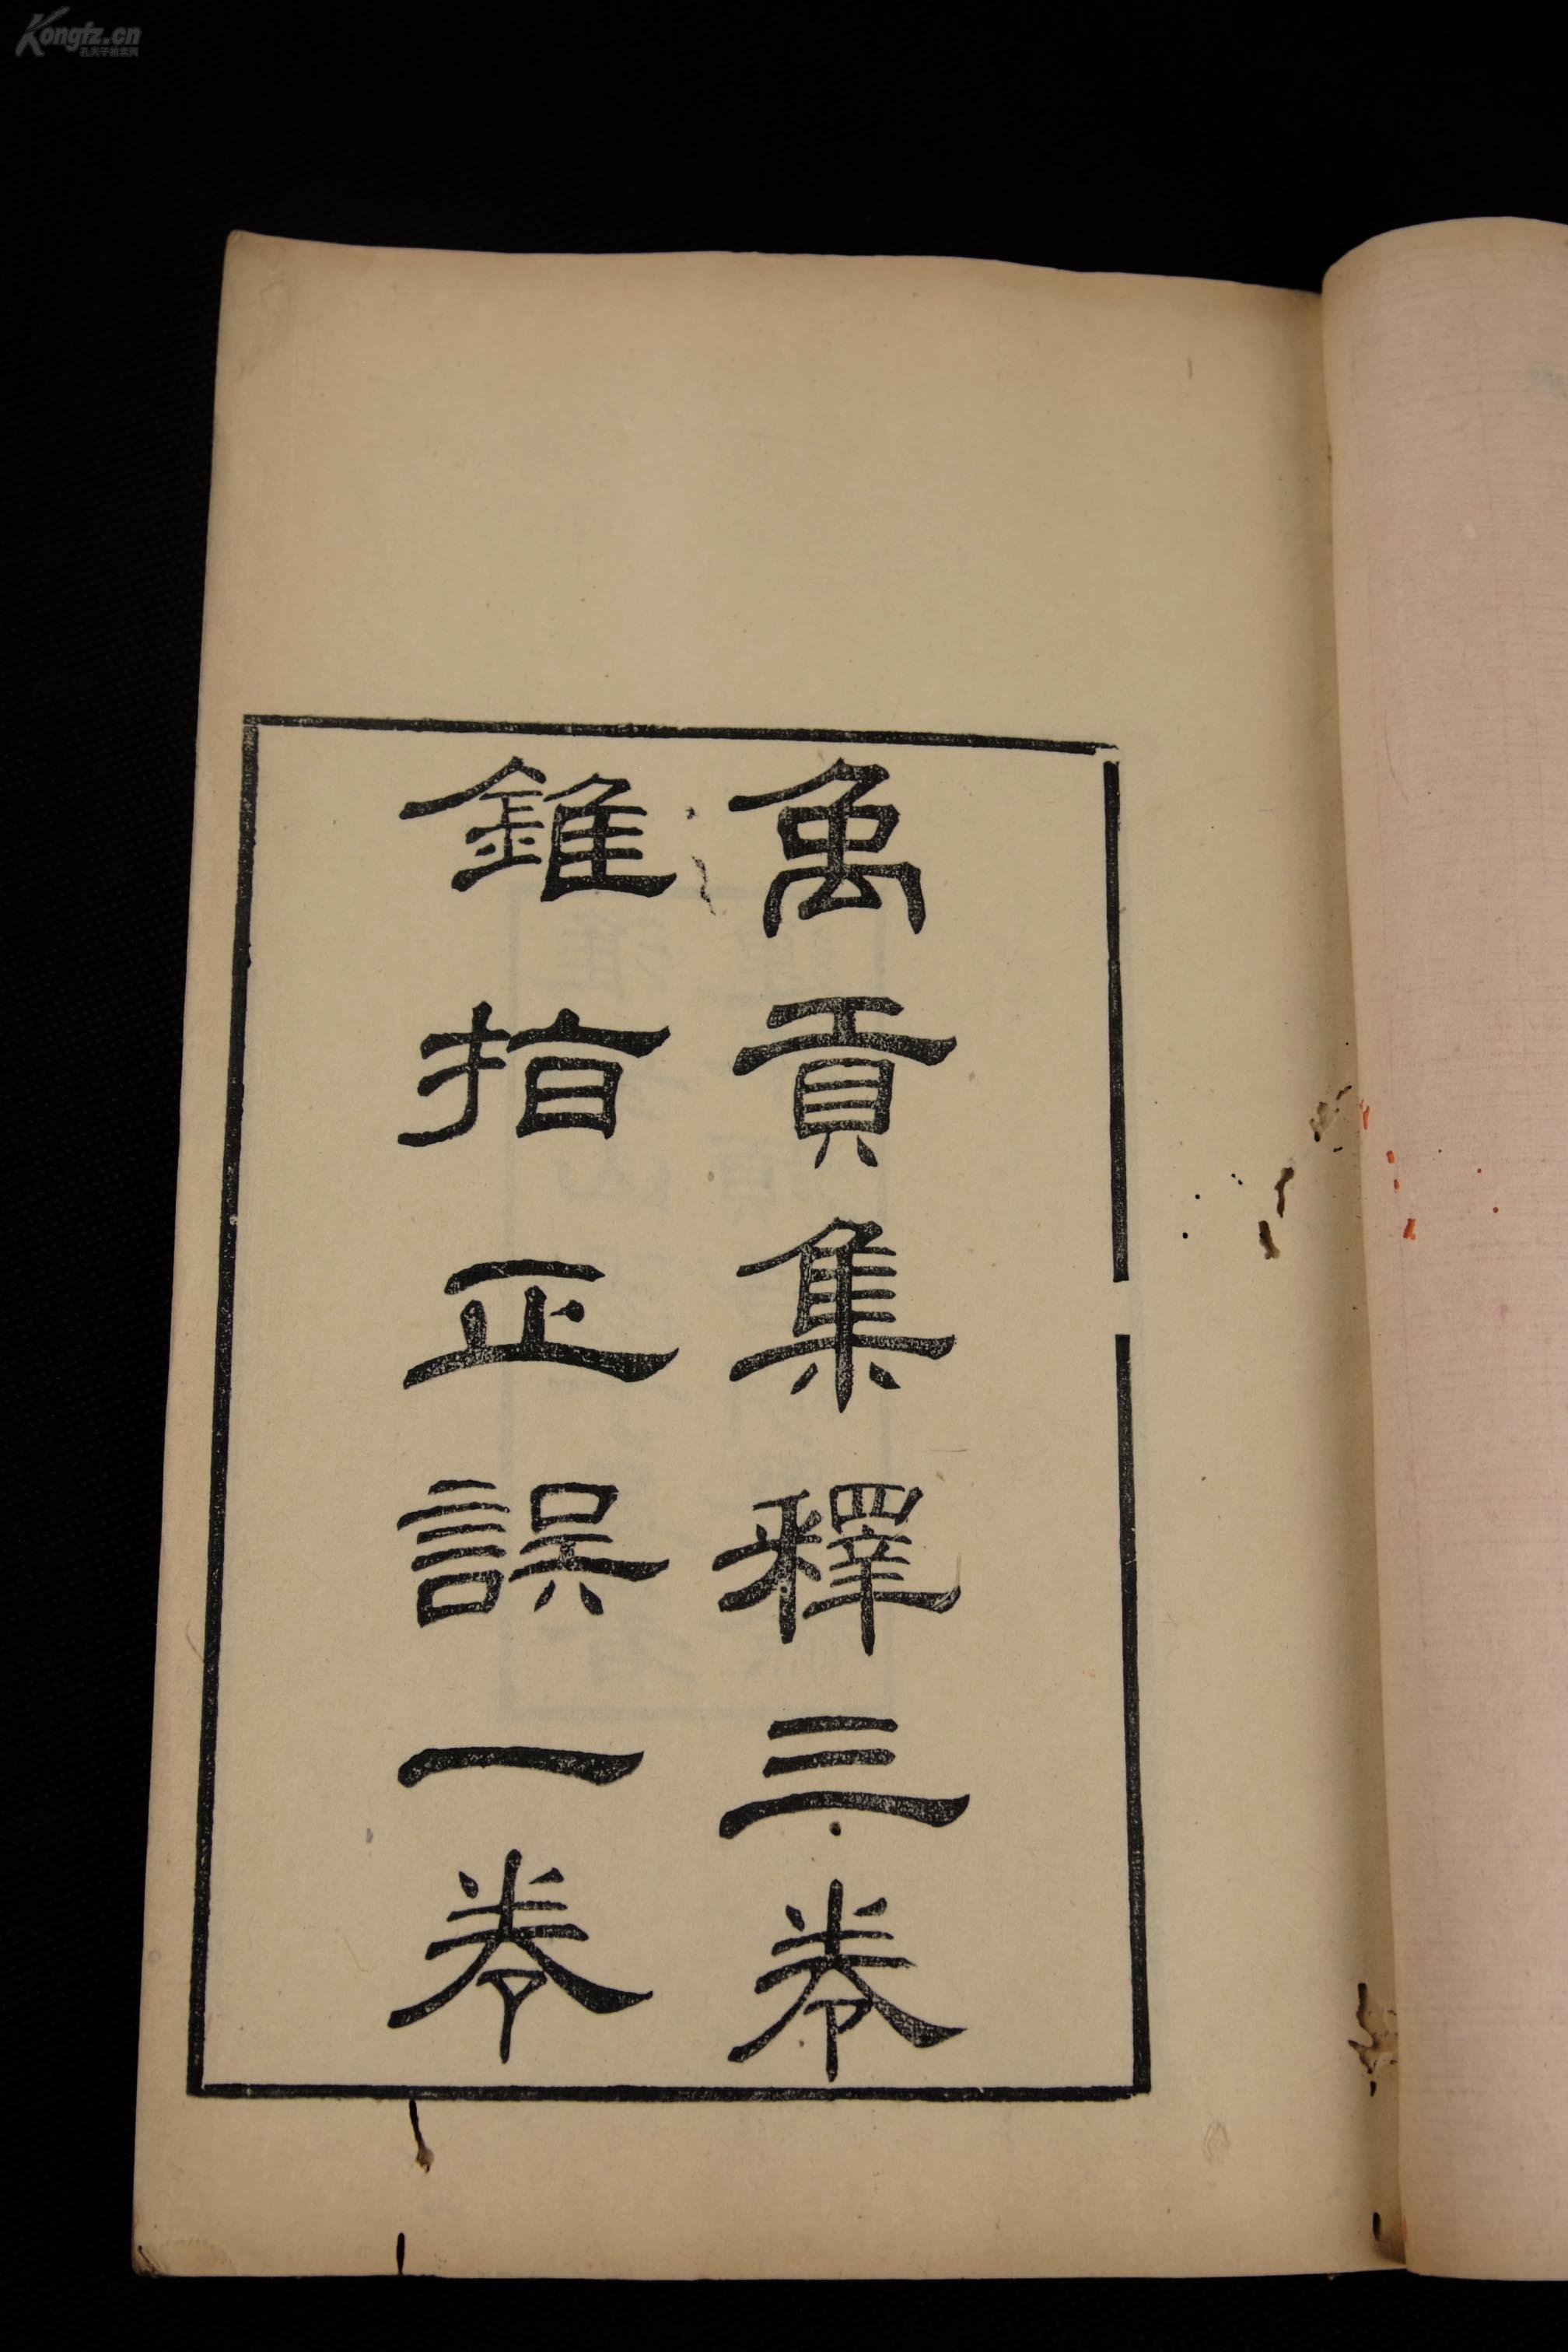 禹貢集釋三卷
錐指正誤一卷
Kongfz.cn
孔夫子拍卖网